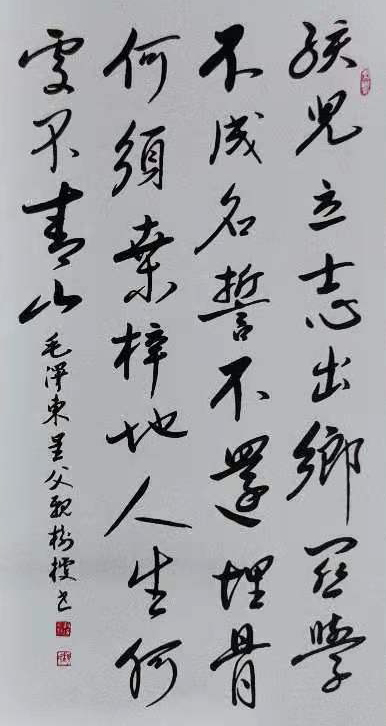 孩兒立志出鄉関學
不成名誓不還埋骨
何須桑梓地人生何
處不青山
毛澤東呈父親樹槐書